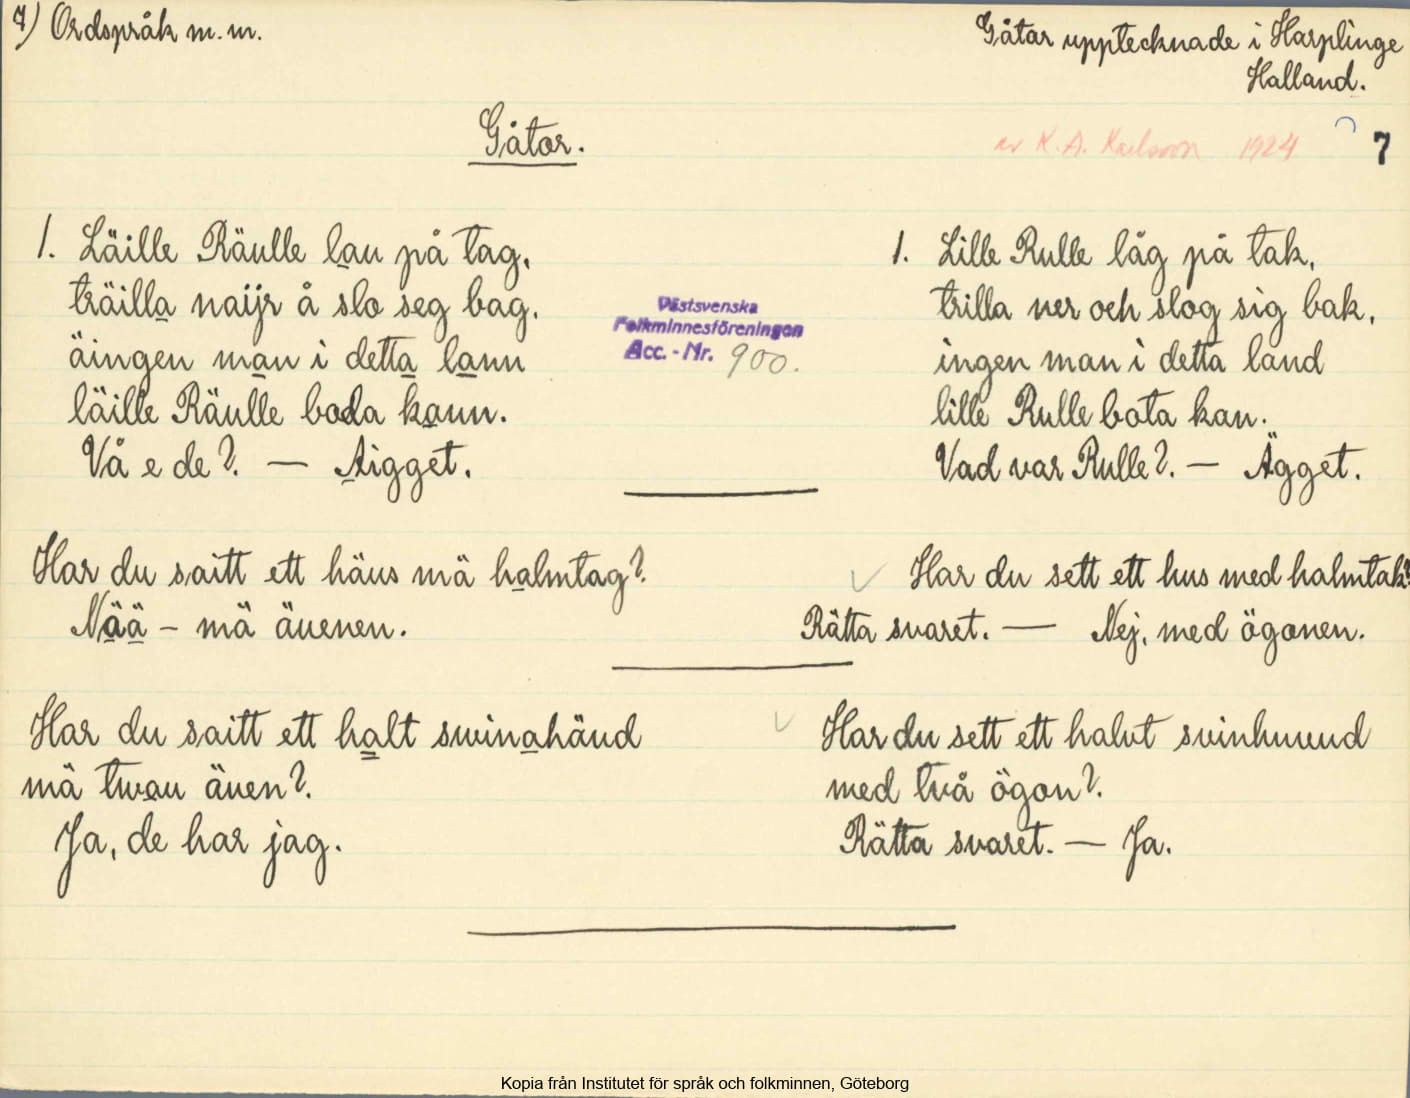 7) Ordspråk m.m.
Gåtor upptecknade i Harplinge
Halland.
Gåtor.
av K. A. Karlsson 1924
7
1. Läille Räulle lau på tag,
träilla naijr å slo seg bag,
äingen man i detta lann
läille Räulle boda kann.
Vå e de? — Aigget.
Västsvenska
Folkminnesföreningen
Acc. - Nr. 900.
1. Lille Rulle låg på tak,
trilla ner och slog sig bak,
ingen man i detta land
lille Rulle bota kan.
Vad var Rulle? — Ägget.
Har du saitt ett häus mä halmtag?
Nää – mä äuenen.
Har du sett ett hus med halmtak?
Rätta svaret. — Nej, med ögonen.
Har du saitt ett halt swinahäud
mä twau äuen?
Ja, de har jag.
Har du sett ett halvt svinhuvud
med två ögon?
Rätta svaret. — Ja.
Kopia från Institutet för språk och folkminnen, Göteborg